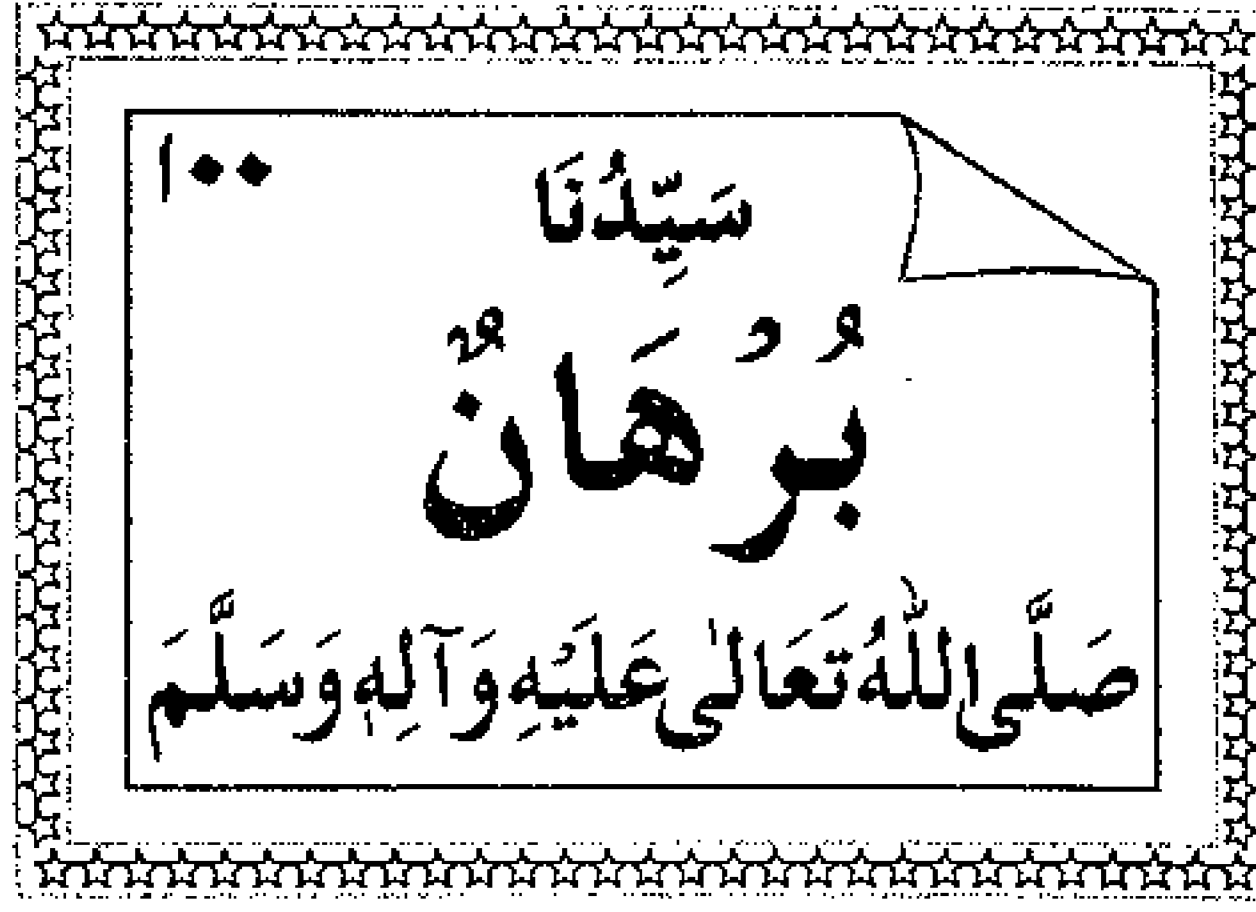 ۱۰۰
سَيِّدُنَا
بُرْهَانٌ
صَلَّى اللّٰهُ تَعَالٰى عَلَيْهِ وَآلِهٖ وَسَلَّمَ